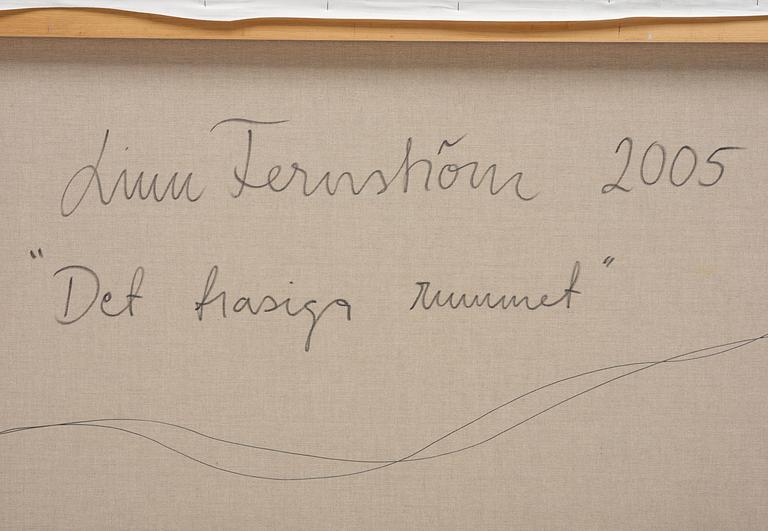 Linn Fernström 2005
"Det trasiga rummet"